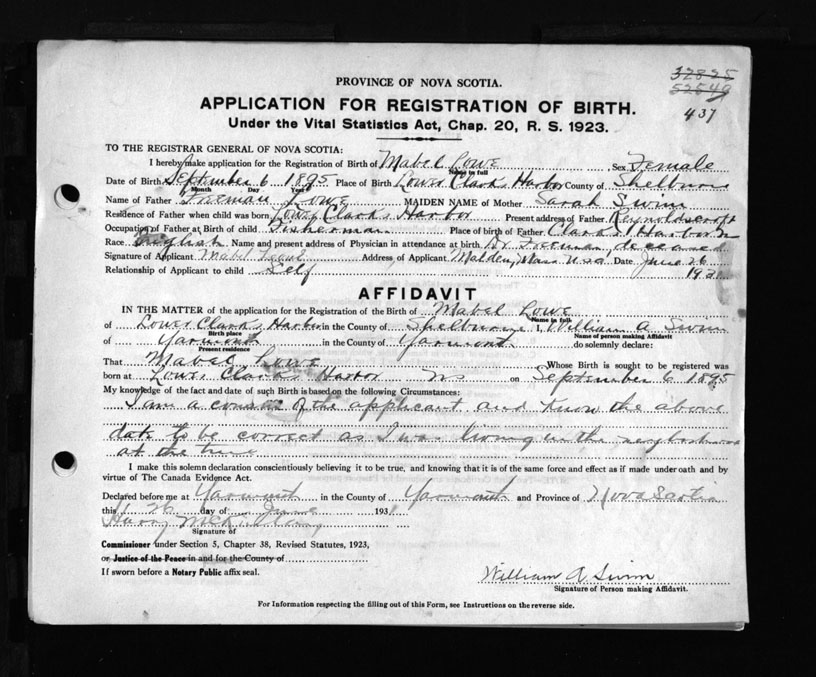 32825
52549
437
PROVINCE OF NOVA SCOTIA.
APPLICATION FOR REGISTRATION OF BIRTH.
Under the Vital Statistics Act, Chap. 20, R. S. 1923.
TO THE REGISTRAR GENERAL OF NOVA SCOTIA:
I hereby make application for the Registration of Birth of Mabel Lowe Sex Female
Name in full
Date of Birth September 6 1895 Place of Birth Lower Clark's Harbor County of Shelburne
Month Day Year
Name of Father Freeman Lowe MAIDEN NAME of Mother Sarah Swim
Residence of Father when child was born Lower Clark's Harbor Present address of Father Reynoldscroft
Occupation of Father at Birth of child Fisherman Place of birth of Father Clark's Harbor
Race English Name and present address of Physician in attendance at birth Dr Freeman, deceased
Signature of Applicant Mabel Address of Applicant Malden, Mass USA Date June 26
Relationship of Applicant to child Self 193
AFFIDAVIT
IN THE MATTER of the application for the Registration of the Birth of Mabel Lowe
Name in full
of Lower Clark's Harbor in the County of Shelburne I, William A Swim
Birth place Name of person making Affidavit
of Yarmouth in the County of Yarmouth do solemnly declare:
Present residence
That Mabel Lowe Whose Birth is sought to be registered was
born at Lower Clark's Harbor NS on September 6 1895
My knowledge of the fact and date of such Birth is based on the following Circumstances:
I am a cousin of the applicant and know the above
date to be correct as I was living in the neighborhood
at the time
I make this solemn declaration conscientiously believing it to be true, and knowing that it is of the same force and effect as if made under oath and by
virtue of The Canada Evidence Act.
Declared before me at Yarmouth in the County of Yarmouth and Province of Nova Scotia
this 26 day of June 1931
Harry
Signature of
Commissioner under Section 5, Chapter 38, Revised Statutes, 1923,
or Justice of the Peace in and for the County of
If sworn before a Notary Public affix seal.
William A Swim
Signature of Person making Affidavit.
For Information respecting the filling out of this Form, see Instructions on the reverse side.